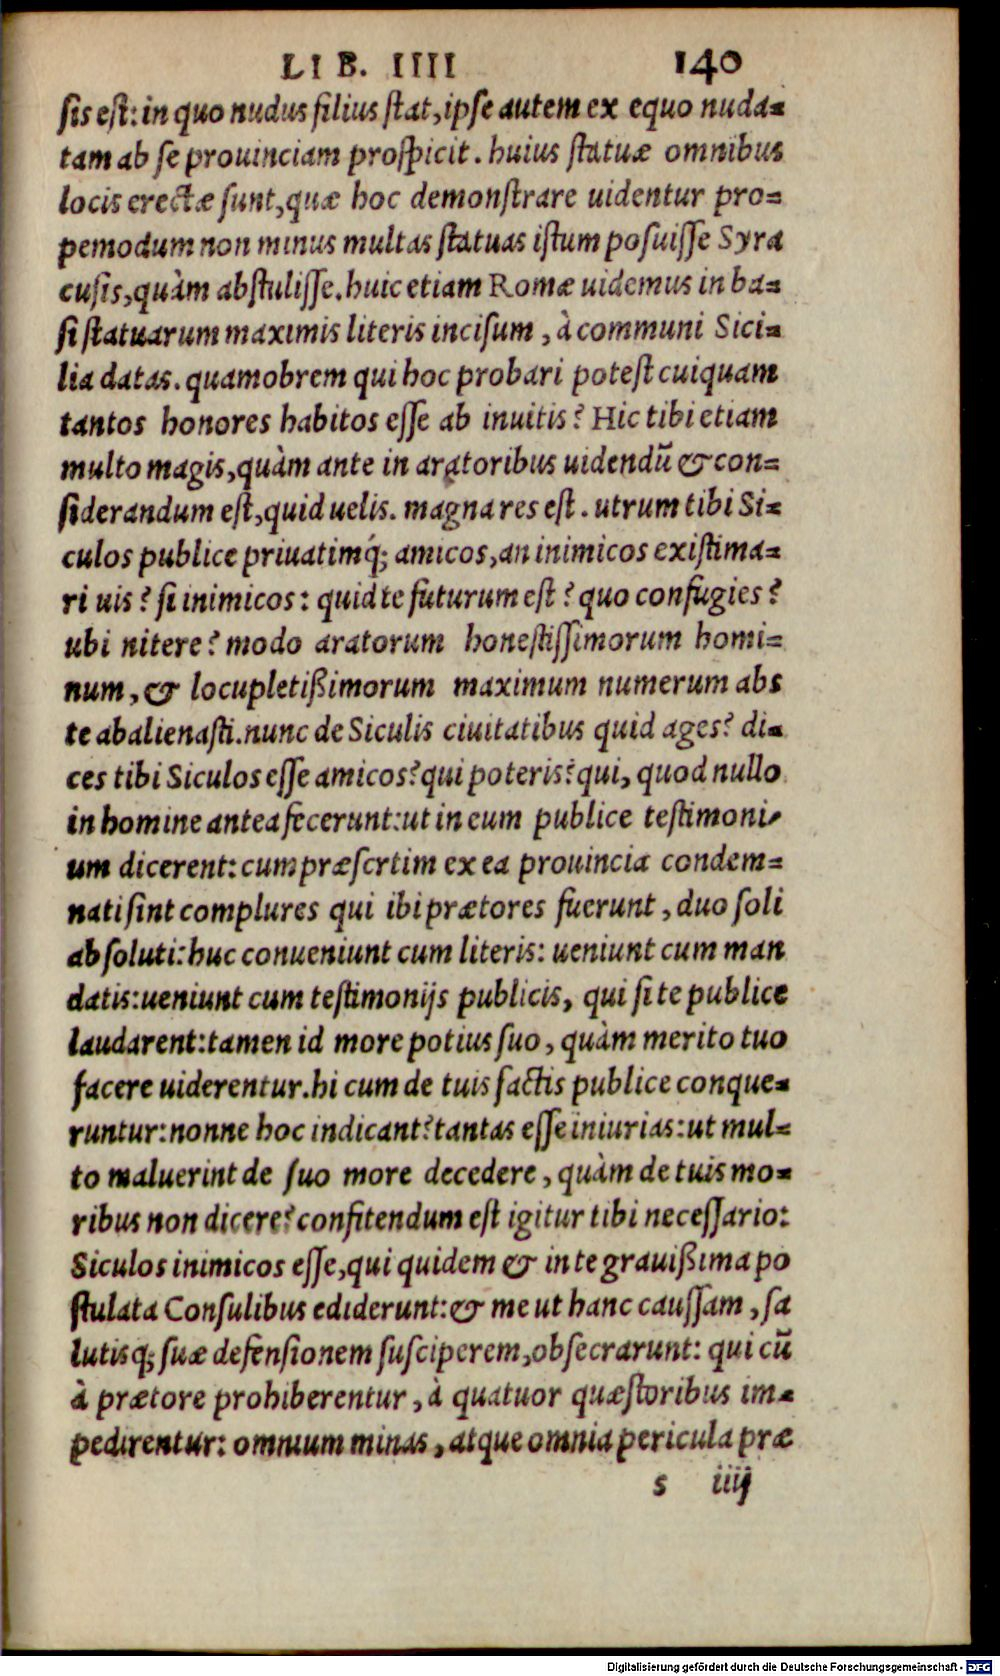 LIB. IIII 140
sis est: in quo nudus filius stat, ipse autem ex equo nuda=
tam ab se prouinciam prospicit. huius statuæ omnibus
locis erectæ sunt, quæ hoc demonstrare uidentur pro=
pemodum non minus multas statuas istum posuisse Syra
cusis, quàm abstulisse. huic etiam Romæ uidemus in ba=
si statuarum maximis literis incisum, à communi Sici=
lia datas. quamobrem qui hoc probari potest cuiquam
tantos honores habitos esse ab inuitis? Hic tibi etiam
multo magis, quàm ante in aratoribus uidendũ & con=
siderandum est, quid uelis. magna res est. utrum tibi Si=
culos publice priuatimq́; amicos, an inimicos existima=
ri uis? si inimicos: quid te futurum est? quo confugies?
ubi nitere? modo aratorum honestissimorum homi=
num, & locupletißimorum maximum numerum abs
te abalienasti. nunc de Siculis ciuitatibus quid ages? di=
ces tibi Siculos esse amicos? qui poteris? qui, quod nullo
in homine antea fecerunt: ut in eum publice testimoni=
um dicerent: cum præsertim ex ea prouincia condem=
nati sint complures qui ibi prætores fuerunt, duo soli
absoluti: huc conueniunt cum literis: ueniunt cum man
datis: ueniunt cum testimonijs publicis, qui si te publice
laudarent: tamen id more potius suo, quàm merito tuo
facere uiderentur. hi cum de tuis factis publice conque=
runtur: nonne hoc indicant? tantas esse iniurias: ut mul=
to maluerint de suo more decedere, quàm de tuis mo=
ribus non dicere? confitendum est igitur tibi necessario:
Siculos inimicos esse, qui quidem & in te grauißima po
stulata Consulibus ediderunt: & me ut hanc caussam, sa
lutisq; suæ defensionem susciperem, obsecrarunt: qui cũ
à prætore prohiberentur, à quatuor quæstoribus im=
pedirentur: omnium minas, atque omnia pericula præ
s iiij
Digitalisierung gefördert durch die Deutsche Forschungsgemeinschaft - DFG